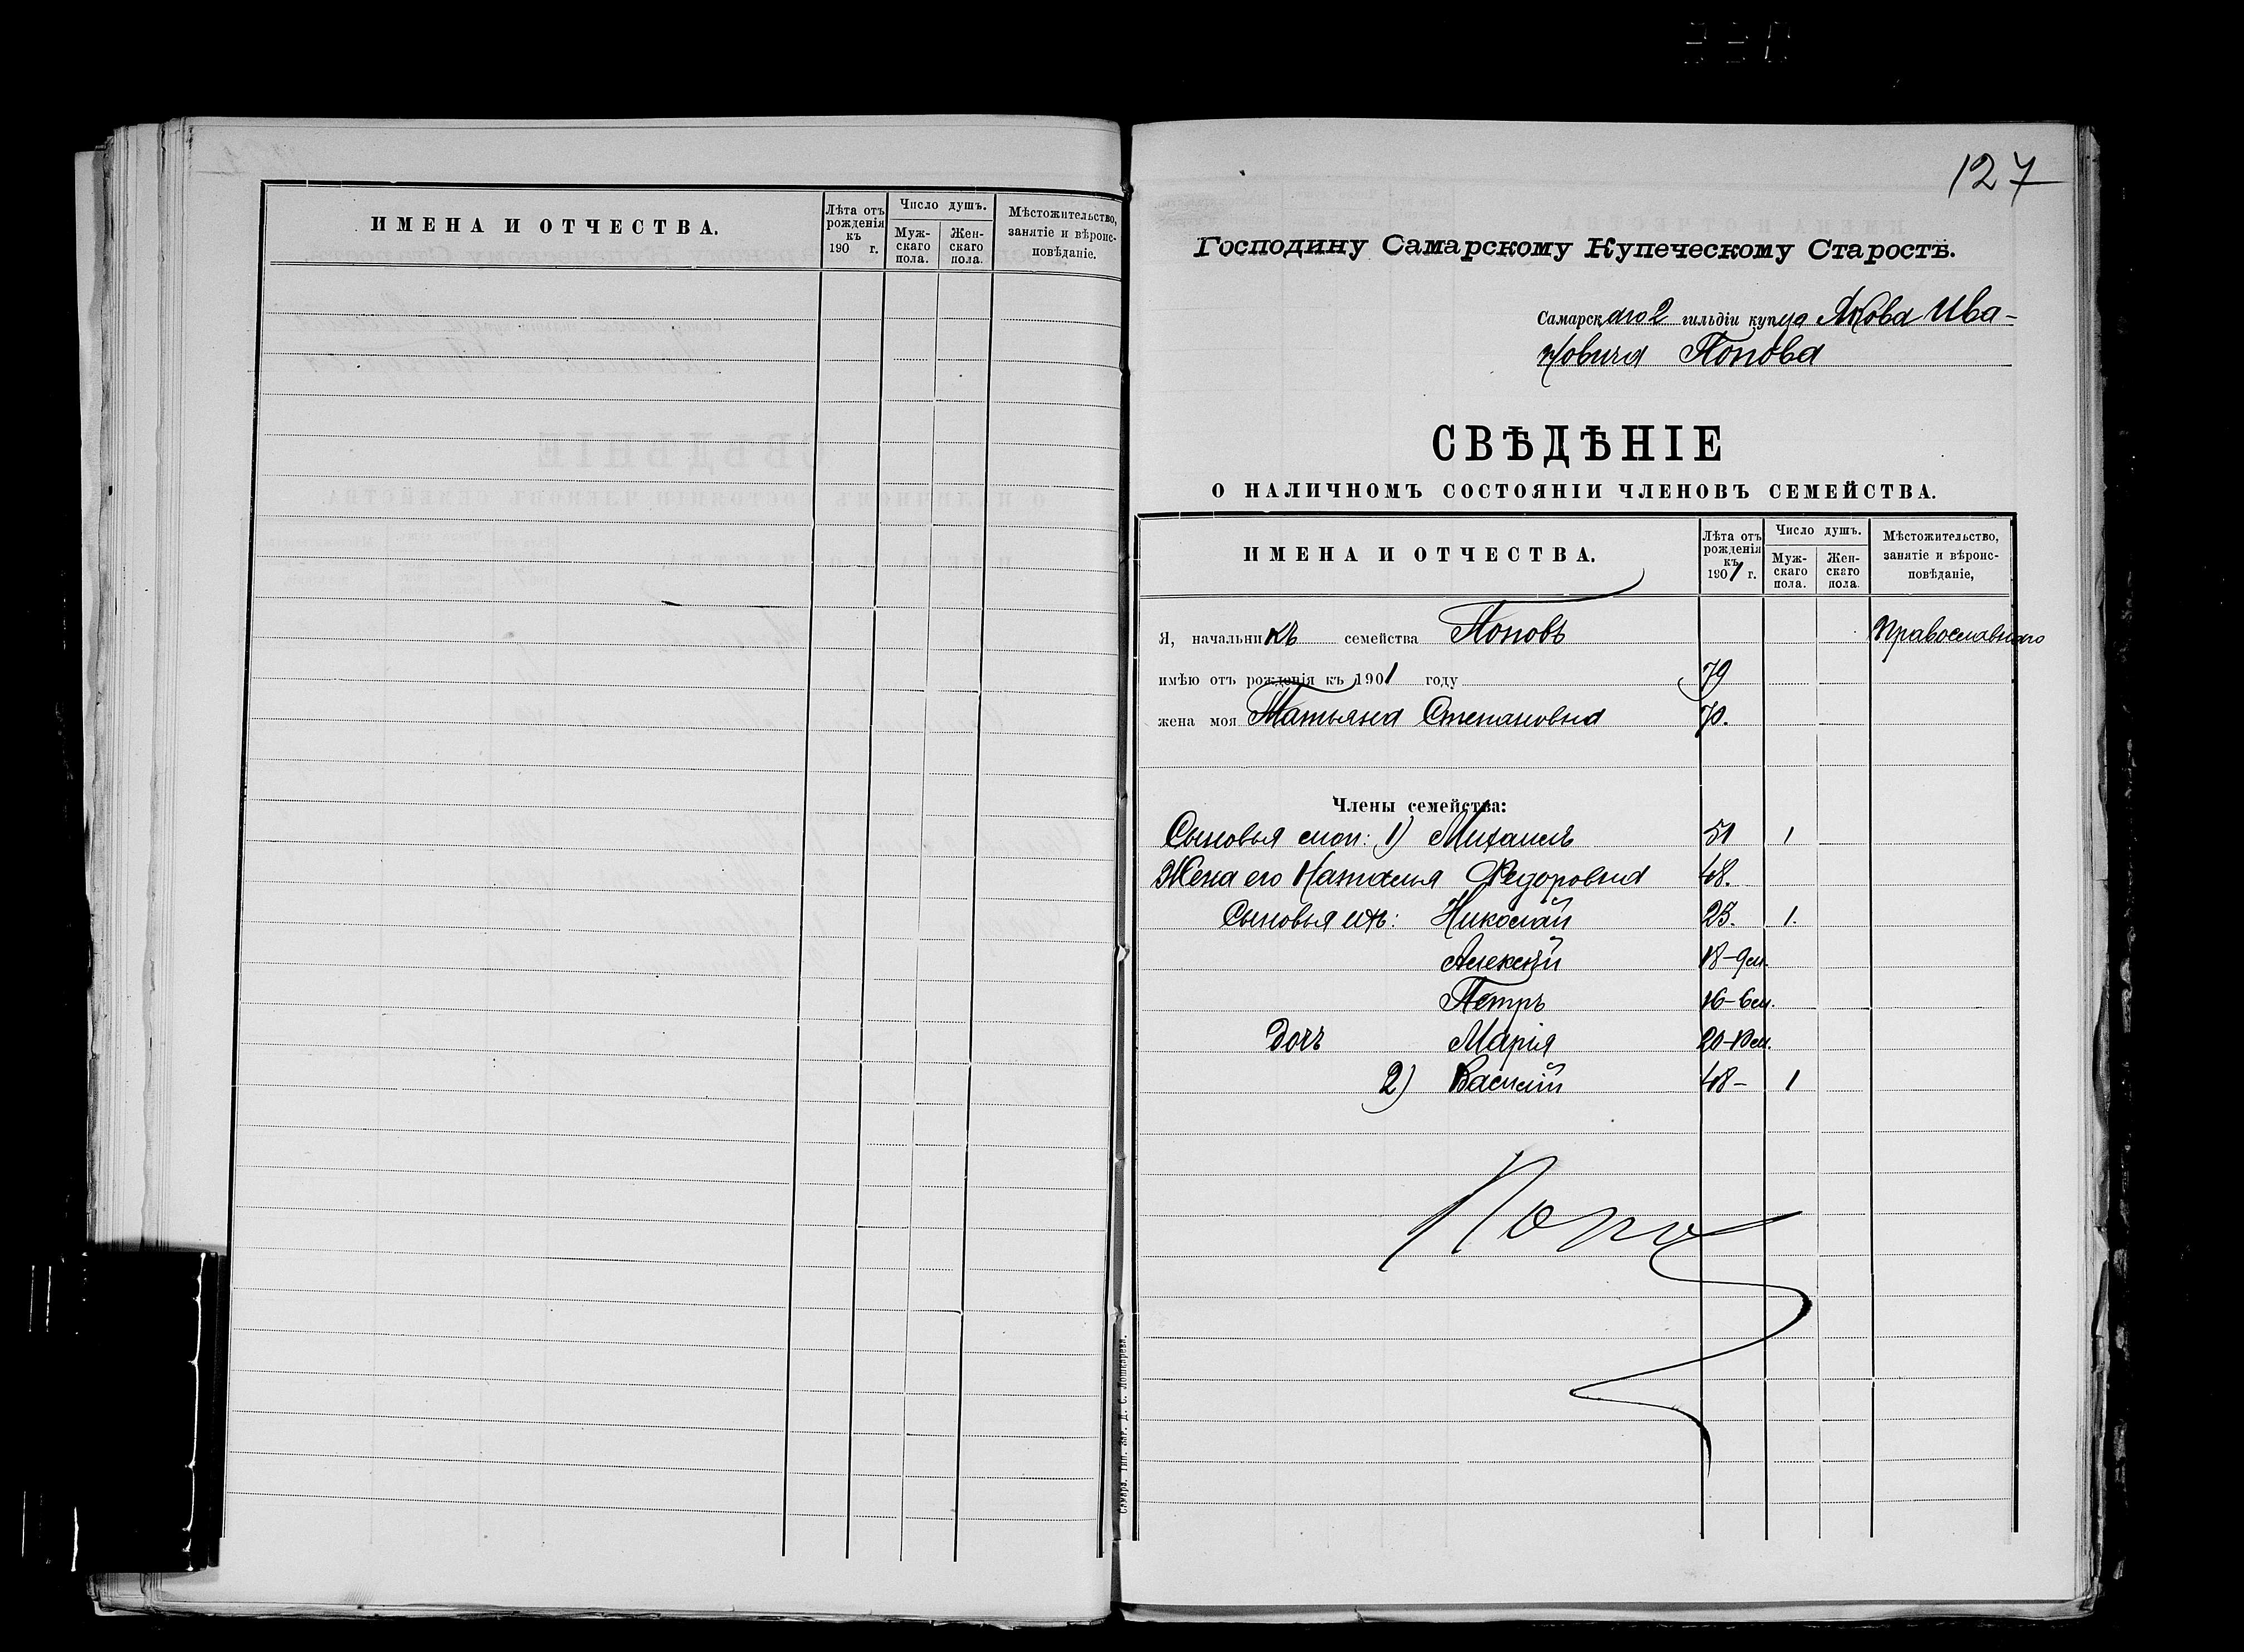 ИМЕНА И ОТЧЕСТВА.
Лѣта отъ рожденія къ 190 г.
Число душъ.
Муж-скаго пола.
Жен-скаго пола.
Мѣстожительство, занятіе и вѣроис-повѣданіе.
Самара. Тип. Заг. Д. С. Лошкарева.
127
Господину Самарскому Купеческому Старостѣ.
Самарскаго 2 гильдіи купца Якова Ива-
новича Попова
СВѢДѢНІЕ
О НАЛИЧНОМЪ СОСТОЯНІИ ЧЛЕНОВЪ СЕМЕЙСТВА.
ИМЕНА И ОТЧЕСТВА.
Лѣта отъ рожденія къ 1901 г.
Число душъ.
Муж-скаго пола.
Жен-скаго пола.
Мѣстожительство, занятіе и вѣроис-повѣданіе,
Я, начальникъ семейства Поповъ Православнаго
имѣю отъ рожденія къ 1901 году 79
жена моя Татьяна Степановна 70.
Члены семейства:
Сыновья мои: 1) Михаилъ 51 1
Жена его Наталья Федоровна 48.
Сыновья ихъ: Николай 23. 1.
Алексѣй 18-9м.
Петръ 16-6м.
Дочь Марія 20-10м.
2) Василій 48- 1